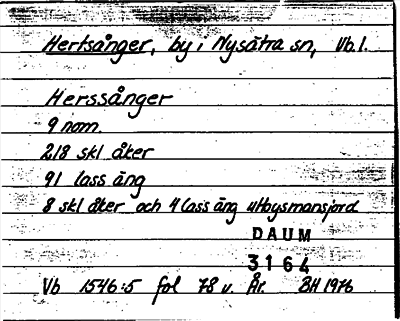 Hertsånger, by i Nysätra sn, Vb.l.
Herssånger
9 nom.
218 skl åker
91 lass äng
8 skl åker och 4 lass äng utbysmansjord
DAUM
3164
Vb 1546:5 fol 78 v. År. BH 1976